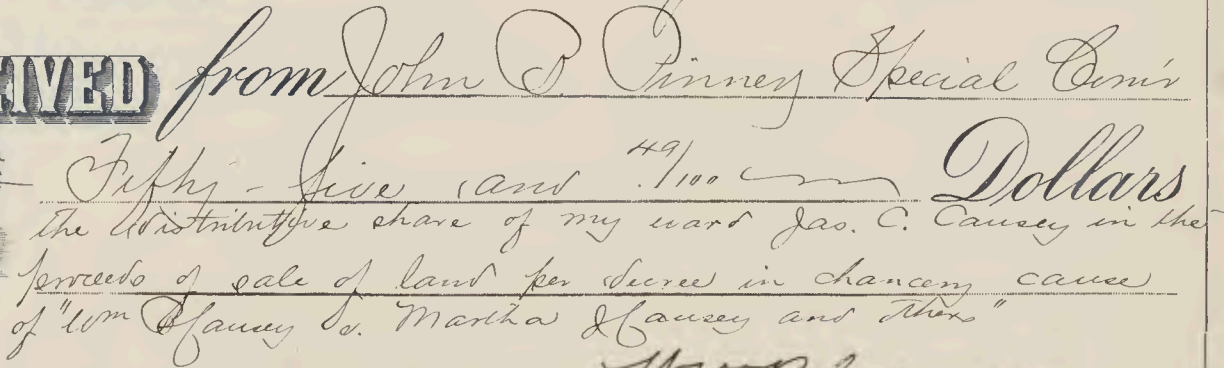 IVED from John B. Pinney Special Com'r
Fifty-five and 49/100 Dollars
the distributive share of my ward Jas. C. Causey in the
proceeds of sale of land per decree in chancery cause
of "Wm Causey vs. Martha Causey and others"